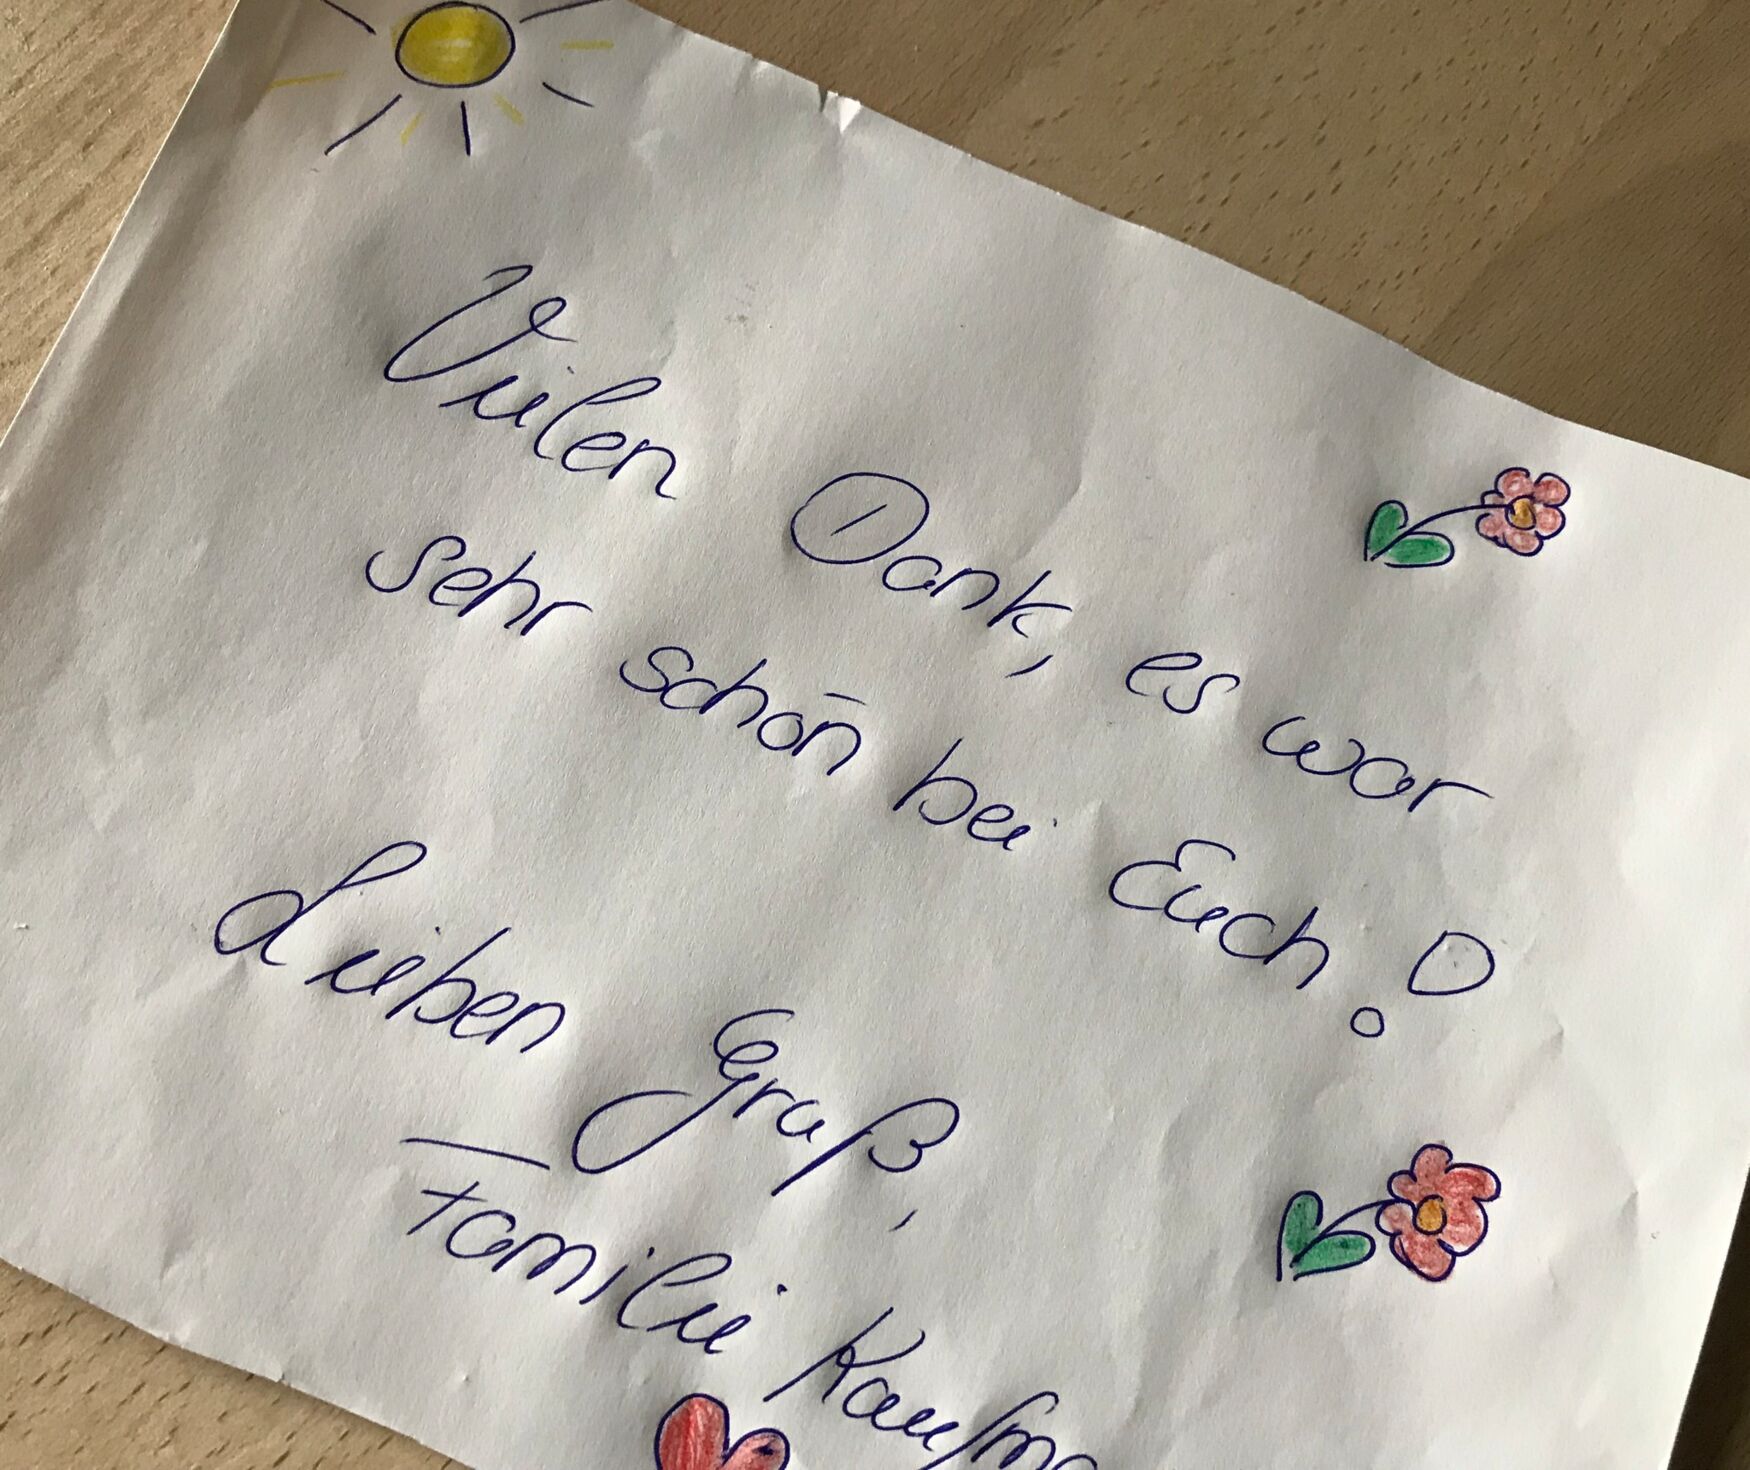 Vielen Dank, es war
sehr schön bei Euch!
Lieben Gruß,
Familie Kaufma